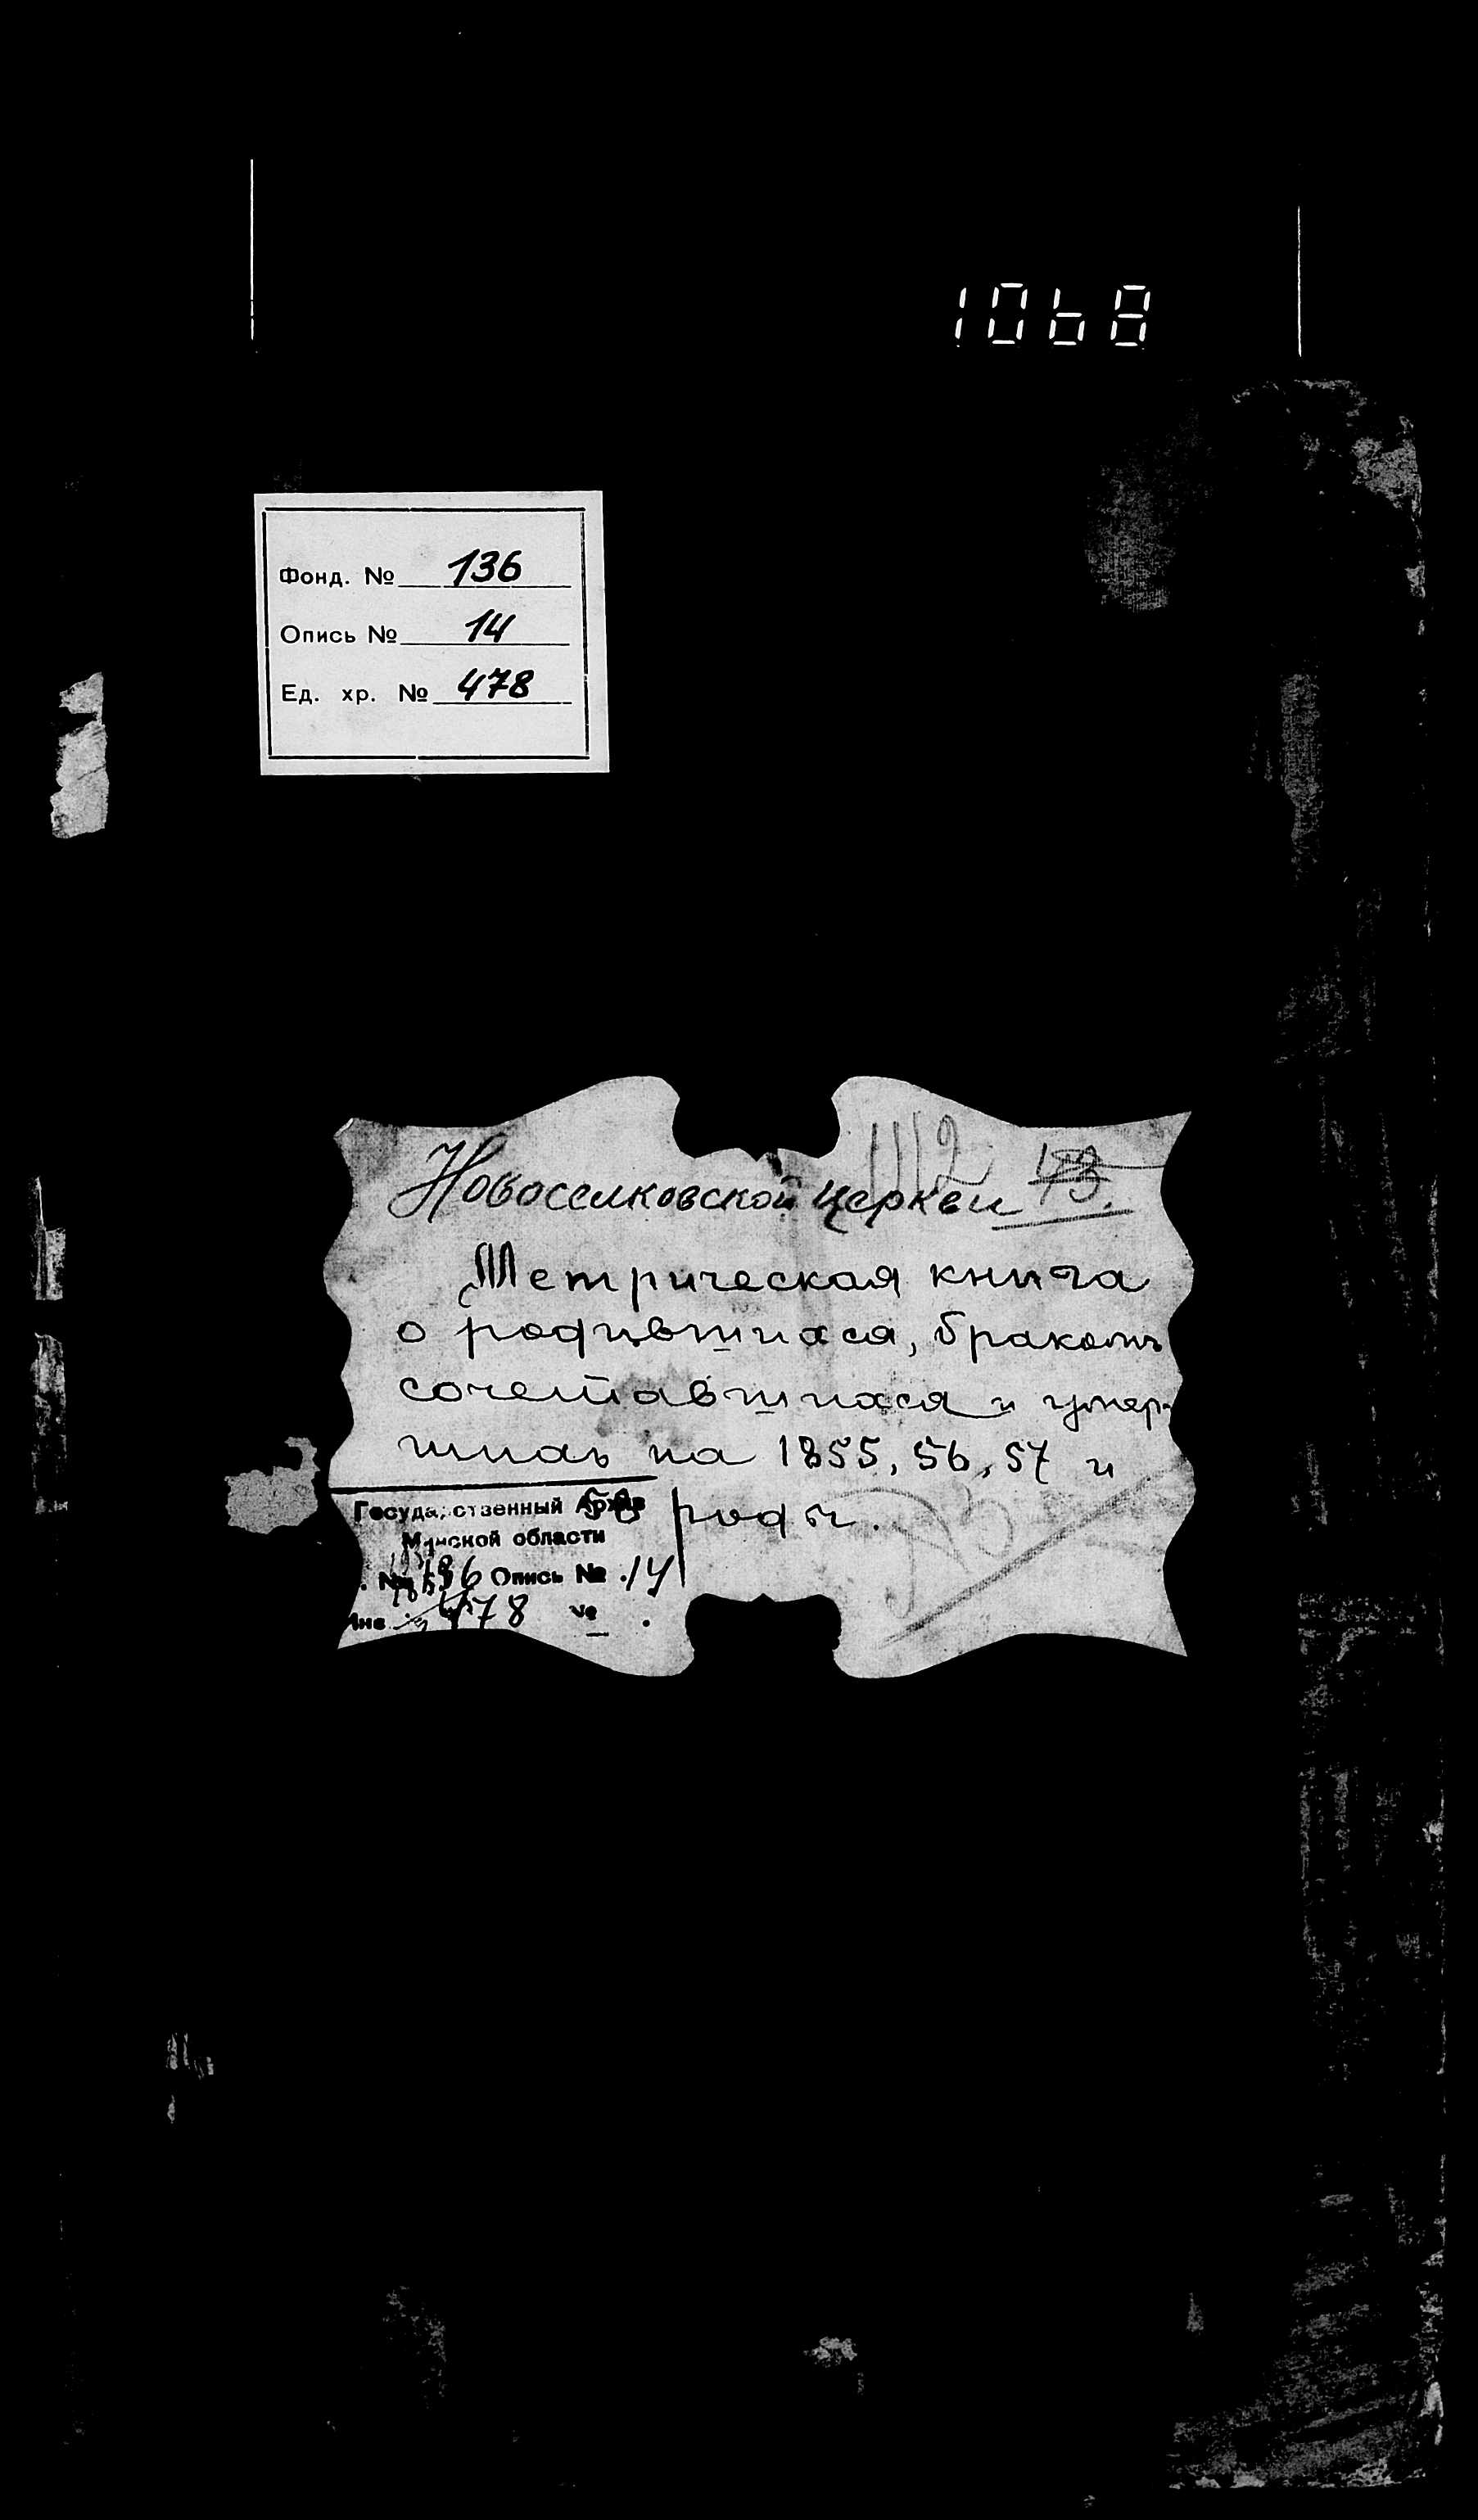 1068
Фонд. № 136
Опись № 14
Ед. хр. № 478
1112
Новоселковской церкви
Метрическая книга
о родившихся, бракомъ
сочетавшихся и умер-
шихъ на 1855, 56, 57 и
58 годы.
Государственный Архив
Минской области
№ 136 Опись № 14
478